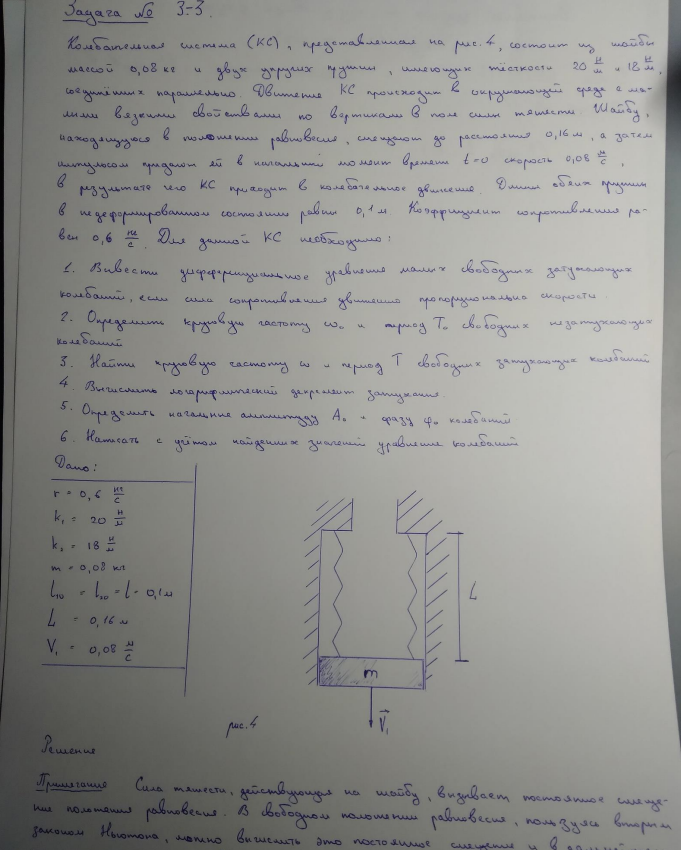 Задача № 3-3.
Колебательная система (КС), представленная на рис. 4, состоит из шайбы
массой 0,08 кг и двух упругих пружин, имеющих жёсткости 20 н/м и 18 н/м,
соединённых параллельно. Движение КС происходит в окружающей среде с ма-
лыми вязкими свойствами по вертикали в поле силы тяжести. Шайбу,
находящуюся в положении равновесия, смещают до расстояния 0,16 м, а затем
импульсом придают ей в начальный момент времени t=0 скорость 0,08 м/с,
в результате чего КС приходит в колебательное движение. Длины обеих пружин
в недеформированном состоянии равны 0,1 м. Коэффициент сопротивления ра-
вен 0,6 кг/с. Для данной КС необходимо:
1. Вывести дифференциальное уравнение малых свободных затухающих
колебаний, если сила сопротивления движению пропорциональна скорости.
2. Определить круговую частоту ω₀ и период T₀ свободных незатухающих
колебаний
3. Найти круговую частоту ω и период T свободных затухающих колебаний
4. Вычислить логарифмический декремент затухания.
5. Определить начальные амплитуду A₀ и фазу φ₀ колебаний
6. Написать с учётом найденных значений уравнение колебаний
Дано:
r = 0,6 кг/с
k₁ = 20 н/м
k₂ = 18 н/м
m = 0,08 кг
l₁₀ = l₂₀ = l = 0,1 м
L = 0,16 м
V₁ = 0,08 м/с
L
m
V₁
рис. 4
Решение
Примечание Сила тяжести, действующая на шайбу, вызывает постоянное смеще-
ние положения равновесия. В свободном положении равновесия, пользуясь вторым
законом Ньютона, можно вычислить это постоянное смещение и в